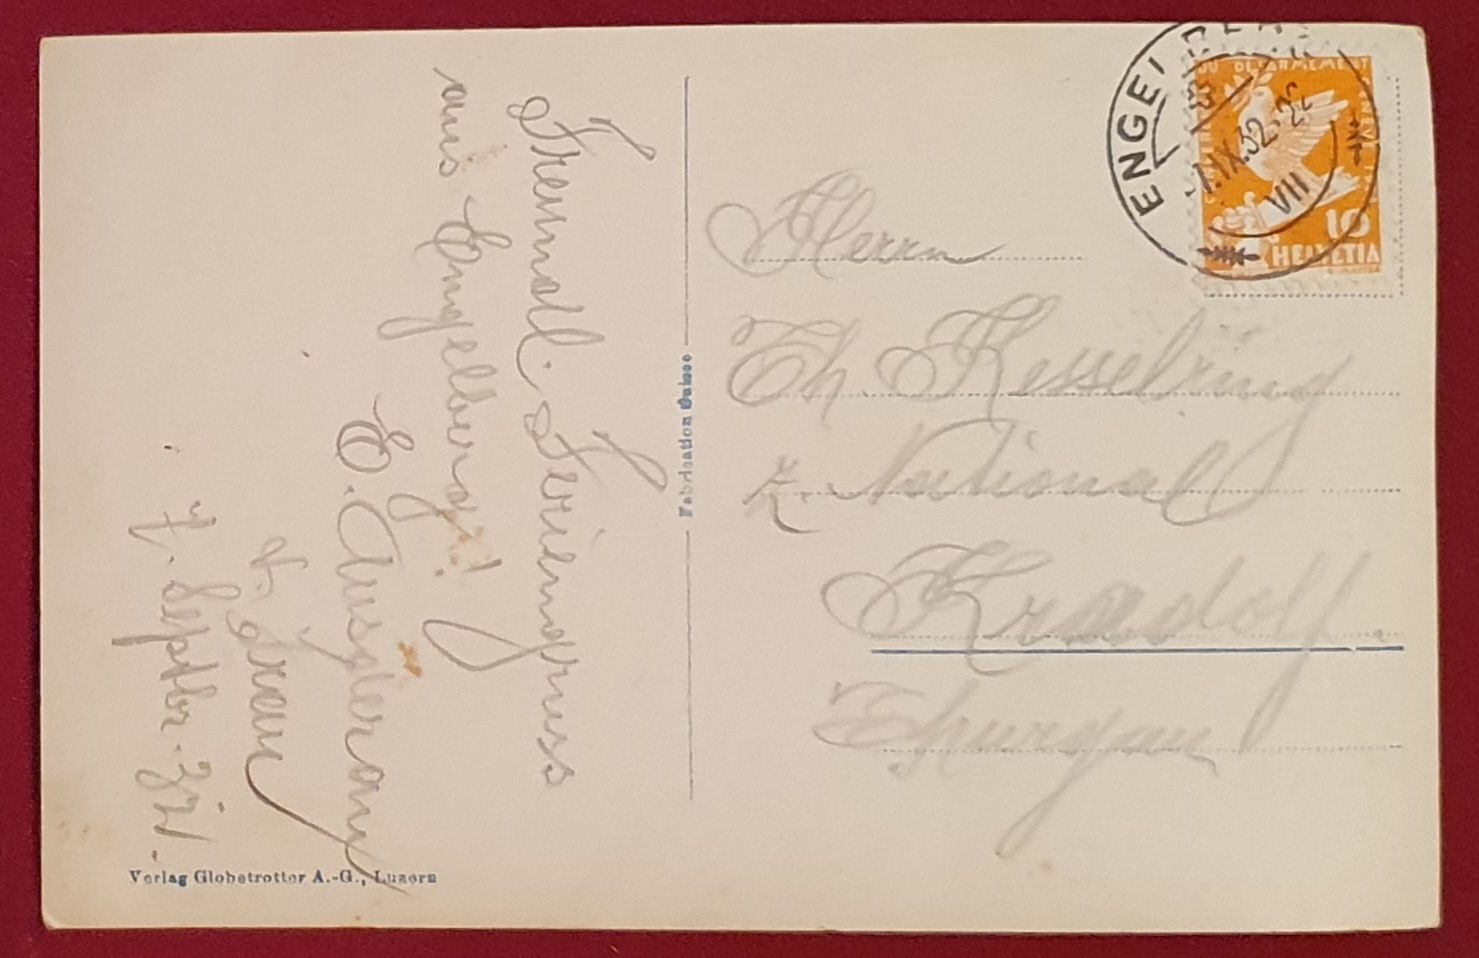 Freundl. Feriengruss
aus Engelberg!
E.
& Frau
7. Septbr. 32.
Verlag Globetrotter A.-G., Luzern
Fabrication Suisse
ENGELBERG
7.IX.32-22
VII
DU DÉSARMEMENT
10
HELVETIA
Herrn
Th. Kesselring
z. National
Kradolf.
Thurgau